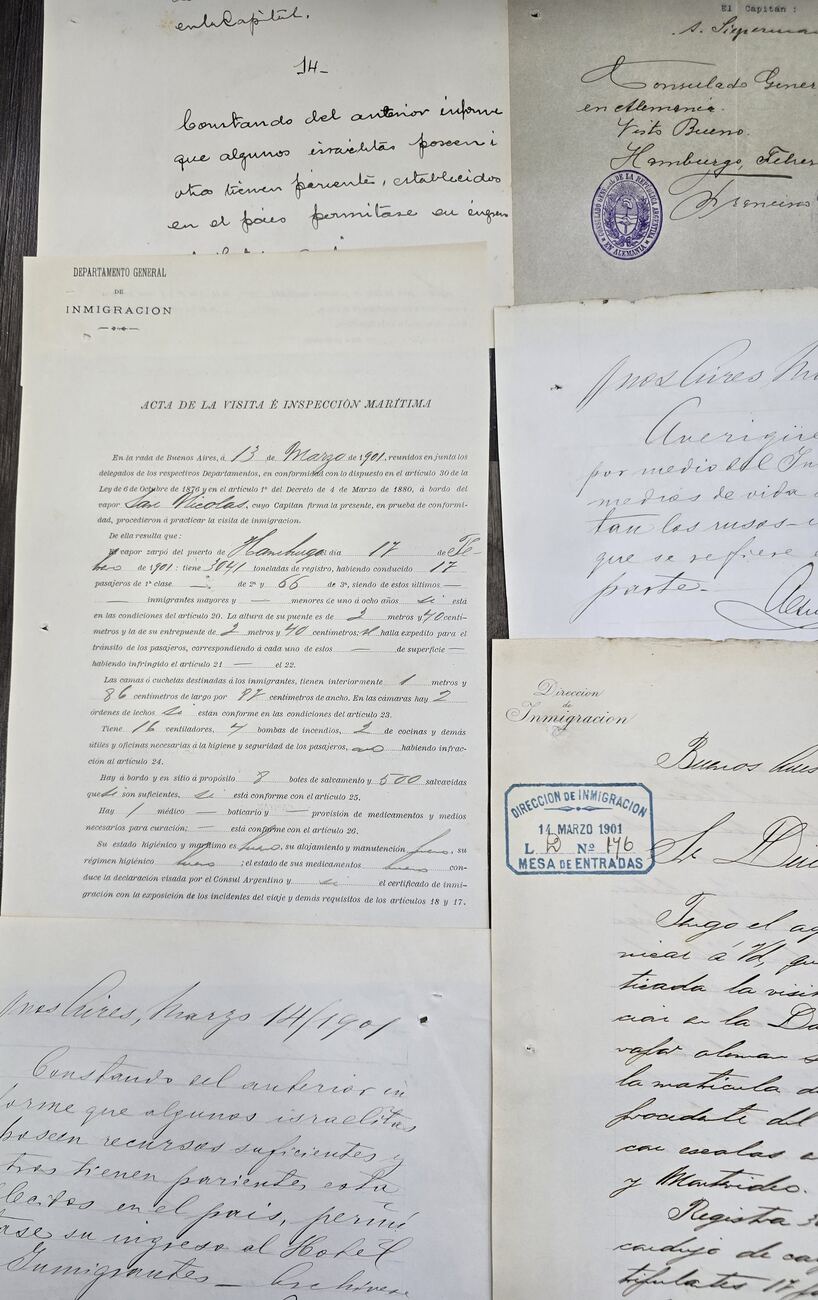 en la Capital.
14-
Constando del anterior informe
que algunos israelitas poseen i
otros tienen parientes, establecidos
en el pais permitase su ingreso
El Capitán :
Consulado Gener
en Alemania.
Visto Bueno.
Hamburgo, Febre
CONSULADO GENERAL DE LA REPUBLICA ARGENTINA
EN ALEMANIA
DEPARTAMENTO GENERAL
DE
INMIGRACION
ACTA DE LA VISITA É INSPECCIÓN MARÍTIMA
En la rada de Buenos Aires, á 13 de Marzo de 1901, reunidos en junta los
delegados de los respectivos Departamentos, en conformidad con lo dispuesto en el artículo 30 de la
Ley de 6 de Octubre de 1876 y en el artículo 1º del Decreto de 4 de Marzo de 1880, á bordo del
vapor San Nicolas, cuyo Capitan firma la presente, en prueba de conformi-
dad, procedieron á practicar la visita de inmigracion.
De ella resulta que:
El vapor zarpó del puerto de Hamburgo el dia 17 de Fe-
brero de 1901: tiene 3041 toneladas de registro, habiendo conducido 17
pasajeros de 1ª clase — de 2ª y 66 de 3ª, siendo de estos últimos —
— inmigrantes mayores y — menores de uno á ocho años si está
en las condiciones del artículo 20. La altura de su puente es de 2 metros y 40 centí-
metros y la de su entrepuente de 2 metros y 40 centímetros: se halla expedito para el
tránsito de los pasajeros, correspondiendo á cada uno de estos — de superficie —
habiendo infringido el artículo 21 — el 22.
Las camas ó cuchetas destinadas á los inmigrantes, tienen interiormente 1 metros y
86 centímetros de largo por 97 centímetros de ancho. En las cámaras hay 2
órdenes de lechos si están conforme en las condiciones del artículo 23.
Tiene 16 ventiladores, 4 bombas de incendios, 2 de cocinas y demás
útiles y oficinas necesarias á la higiene y seguridad de los pasajeros, no habiendo infrac-
ción al artículo 24.
Hay á bordo y en sitio á propósito 8 botes de salvamento y 500 salvavidas
que si son suficientes, si está conforme con el artículo 25.
Hay 1 médico — boticario y — provisión de medicamentos y medios
necesarios para curación; — está conforme con el artículo 26.
Su estado higiénico y marítimo es bueno, su alojamiento y manutención bueno, su
régimen higiénico bueno; el estado de sus medicamentos bueno con-
duce la declaración visada por el Cónsul Argentino y si el certificado de inmi-
gración con la exposición de los incidentes del viaje y demás requisitos de los artículos 18 y 17.
nos Aires
Averigüe
por medio del In
medios de vida
tan los rusos
que se refiere
parte.
Direccion
de
Inmigracion
Buenos Aires
DIRECCION DE INMIGRACION
14 MARZO 1901
L. D Nº 176
MESA DE ENTRADAS
Sr. Dire
Tengo el ag
nicar á Vd, que
ticada la visit
cion en la Da
vapor aleman S
la matrícula de
procedente del
con escalas e
y Montevideo.
Registra 30
condujo de ca
tripulantes 17
nos Aires, Marzo 14/1901
Constando del anterior in
forme que algunos israelitas
poseen recursos suficientes y
otros tienen parientes esta
blecidos en el pais, permi
tase su ingreso al Hotel
Inmigrantes — Archívese